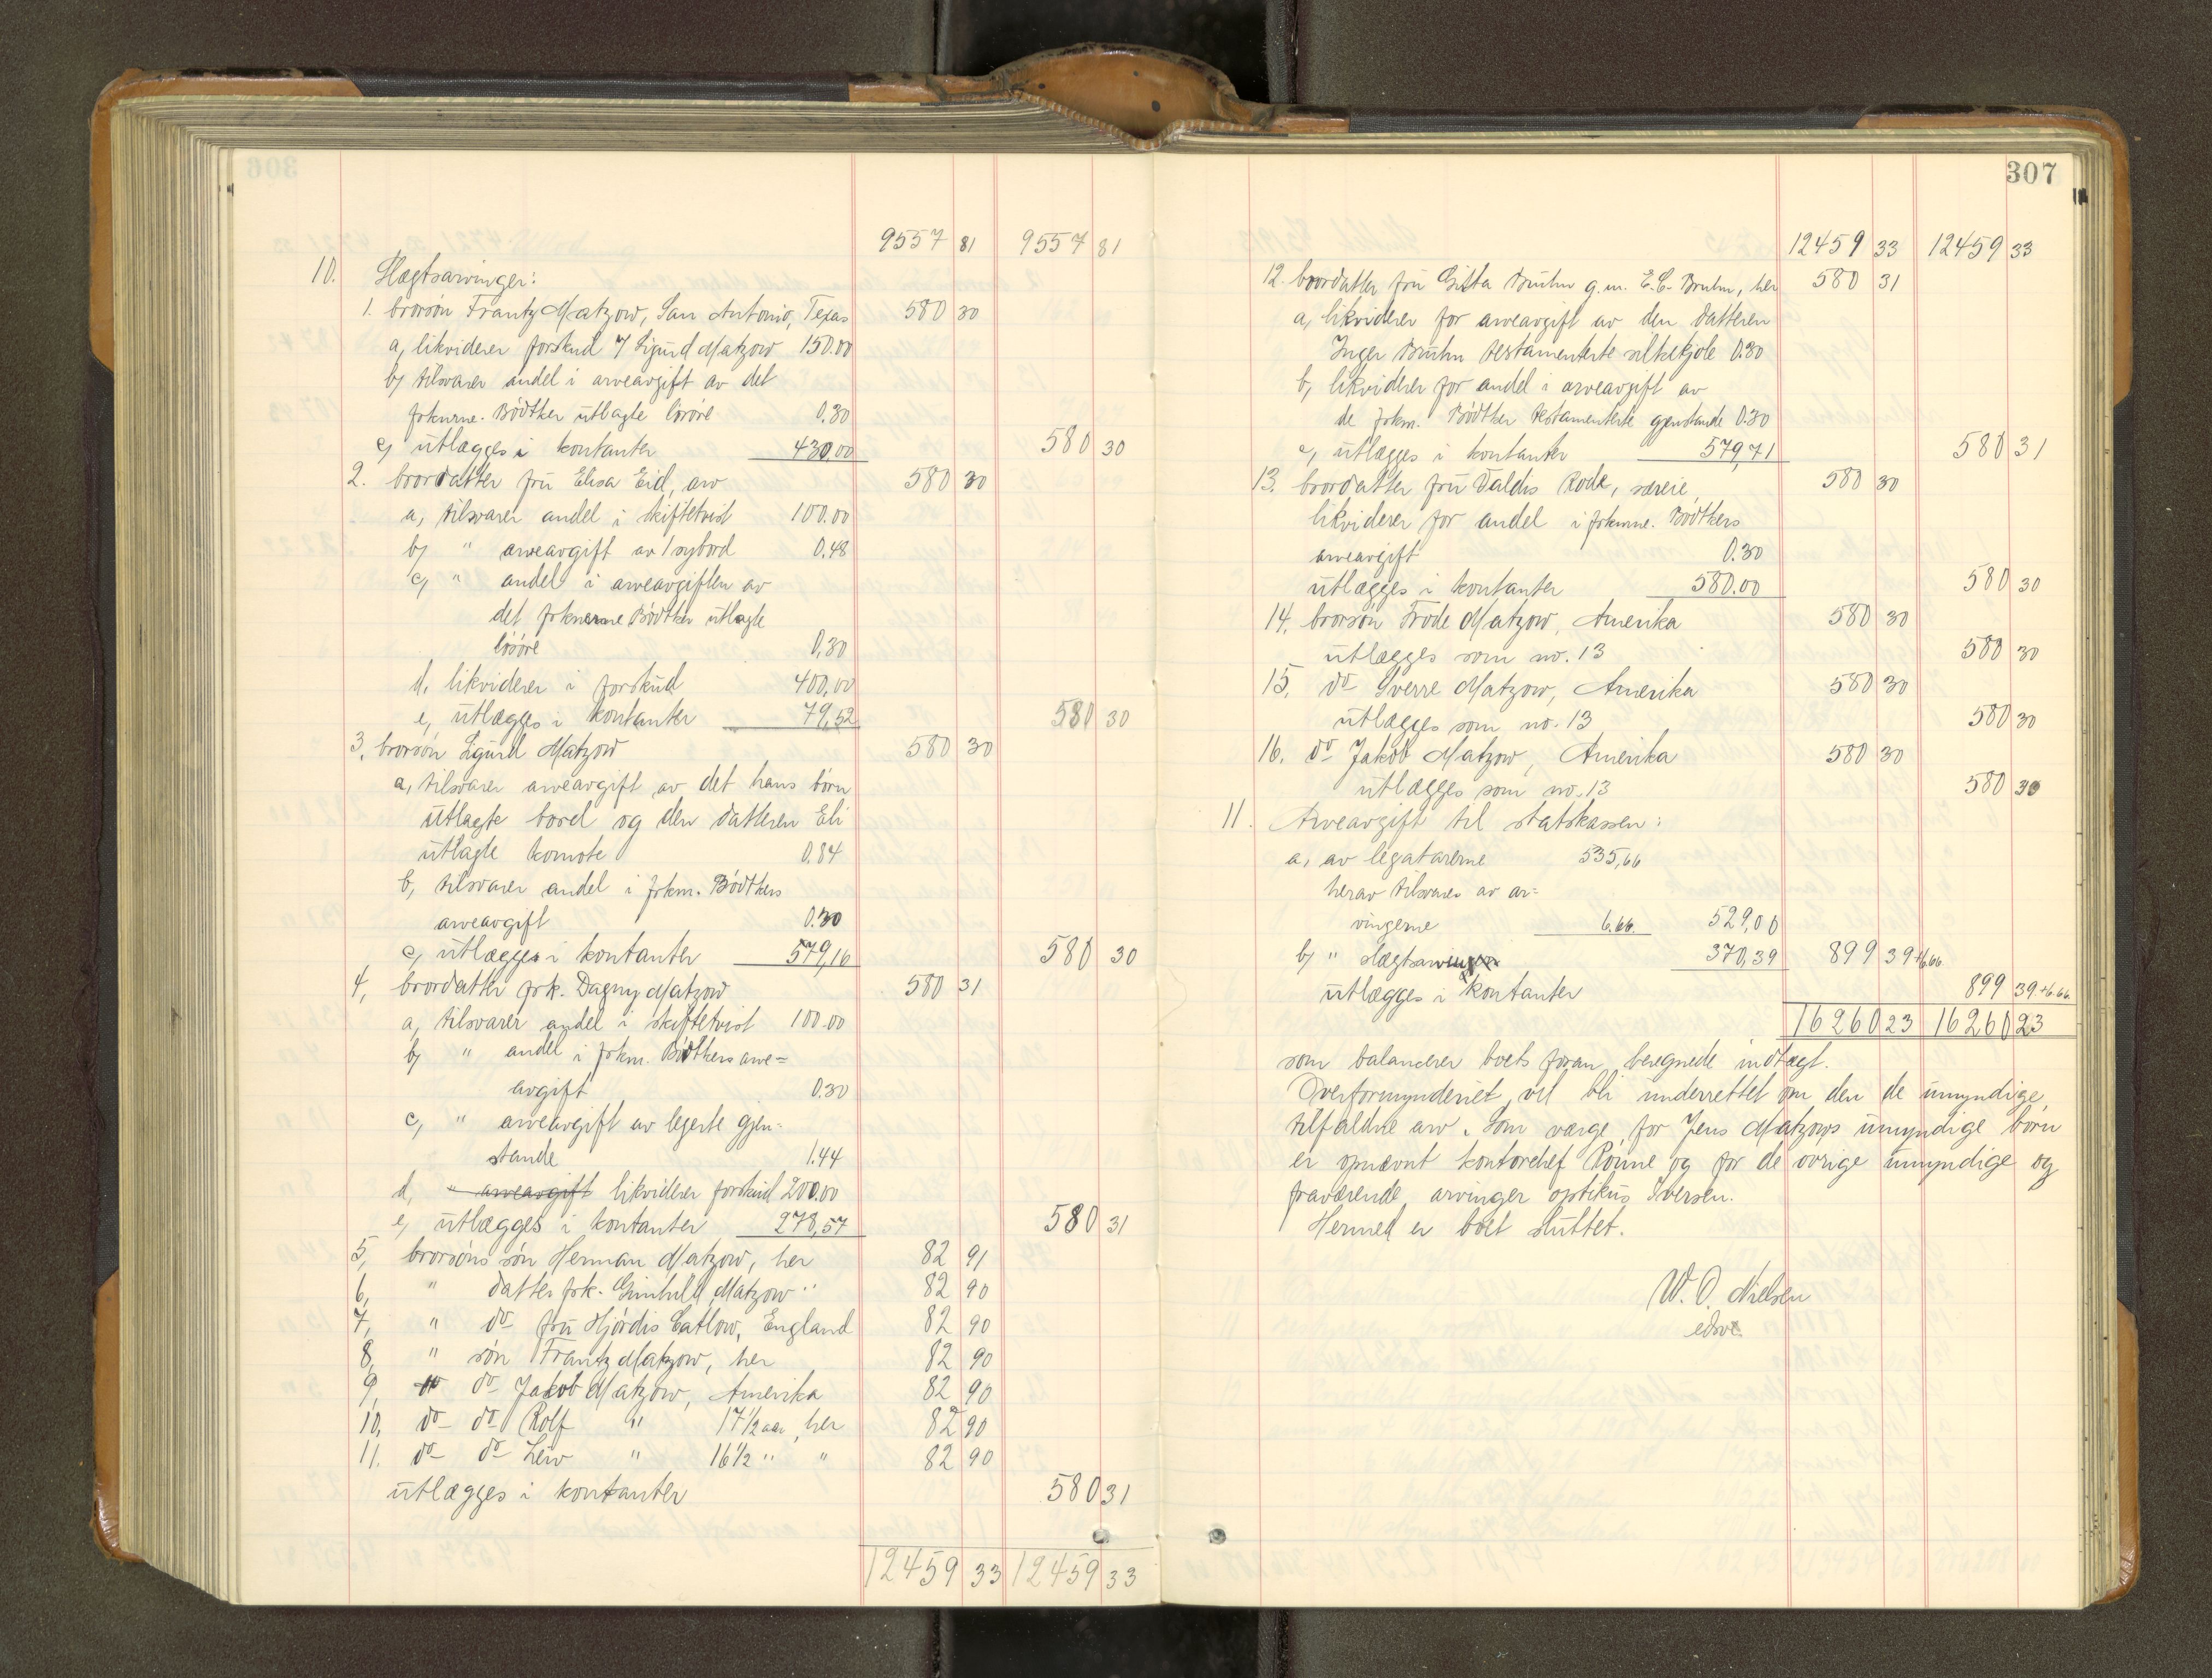 9557 81 9557 81
10. Slægtsarvinger:
1. brorsøn Frantz Matzow, San Antonio, Texas 580 30
a, likviderer forskud 7 Sigurd Matzow 150.00
b, tilsvarer andel i arveavgift av det
frknrne. Bødtker utlagte lösöre 0.30
c, utlægges i kontanter 430,00 580 30
2. brordatter fru Elisa Eid, arv 580 30
a, tilsvarer andel i skiftetvist 100.00
b, " arveavgift av 1 sybord 0.48
c, " andel i arveavgiften av
det frknerne Bødtker utlagte
lösöre 0.30
d, likviderer i forskud 400,00
e, utlægges i kontanter 79,52 580 30
3, brorsøn Sigurd Matzow 580 30
a, tilsvarer arveavgift av det hans børn
utlagte bord og den datteren Eli
utlagte komote 0.84
b, tilsvarer andel i frkm. Bødtkers
arveavgift 0.30
c, utlægges i kontanter 579,16 580 30
4, brordatter frk. Dagny Matzow 580 31
a, tilsvarer andel i skiftetvist 100.00
b, " andel i frkm. Bødtkers arve=
avgift 0.30
c, " arveavgift av legerte gjen=
stande 1.44
d, " arveavgift likviderer forskud 200.00
e, utlægges i kontanter 278,57 580 31
5, brorsøns søn Herman Matzow, her 82 91
6, " datter frk. Gunhild Matzow " 82 90
7, " do fru Hjørdis Catlow, England 82 90
8, " søn Frantz Matzow, her 82 90
9, do do Jakob Matzow, Amerika 82 90
10, do do Rolf " 17 1/2 aar, her 82 90
11. do do Leiv " 16 1/2 " " 82 90
utlægges i kontanter 580 31
12459 33 12459 33
307
12459 33 12459 33
12. brordatter fru Gitta Bruhn g.m. E.C. Bruhn, her 580 31
a, likviderer for arveavgift av den datteren
Inger Bruhn testamenterte silkekjole 0.30
b, likviderer for andel i arveavgift av
de frkm. Bødtker testamenterte gjenstande 0.30
c, utlægges i kontanter 579,71 580 31
13. brordatter fru Valdis Rode, særeie, 580 30
likviderer for andel i frkmne. Bødtkers
arveavgift 0.30
utlægges i kontanter 580.00 580 30
14, brorsøn Frode Matzow, Amerika 580 30
utlægges som no. 13 580 30
15, do Sverre Matzow, Amerika 580 30
utlægges som no. 13 580 30
16. do Jakob Matzow, Amerika 580 30
utlægges som no. 13 580 30
11. Arveavgift til statskassen:
a, av legatarerne 535,66
herav tilsvares av ar=
vingerne 6.66. 529,00
b, " slægtsarvinger 370,39 899 39 +6.66
utlægges i kontanter 899 39 +6.66
16260 23 16260 23
som balancerer boets foran beregnede indtægt.
Overformynderiet vil bli underrettet om den de umyndige
tilfaldne arv. Som værge for Jens Matzows umyndige børn
er opnævnt kontorchef Rønne og for de øvrige umyndige og
fraværende arvinger optikus Iversen.
Hermed er boet sluttet.
W. O. Nielsen
edsv.